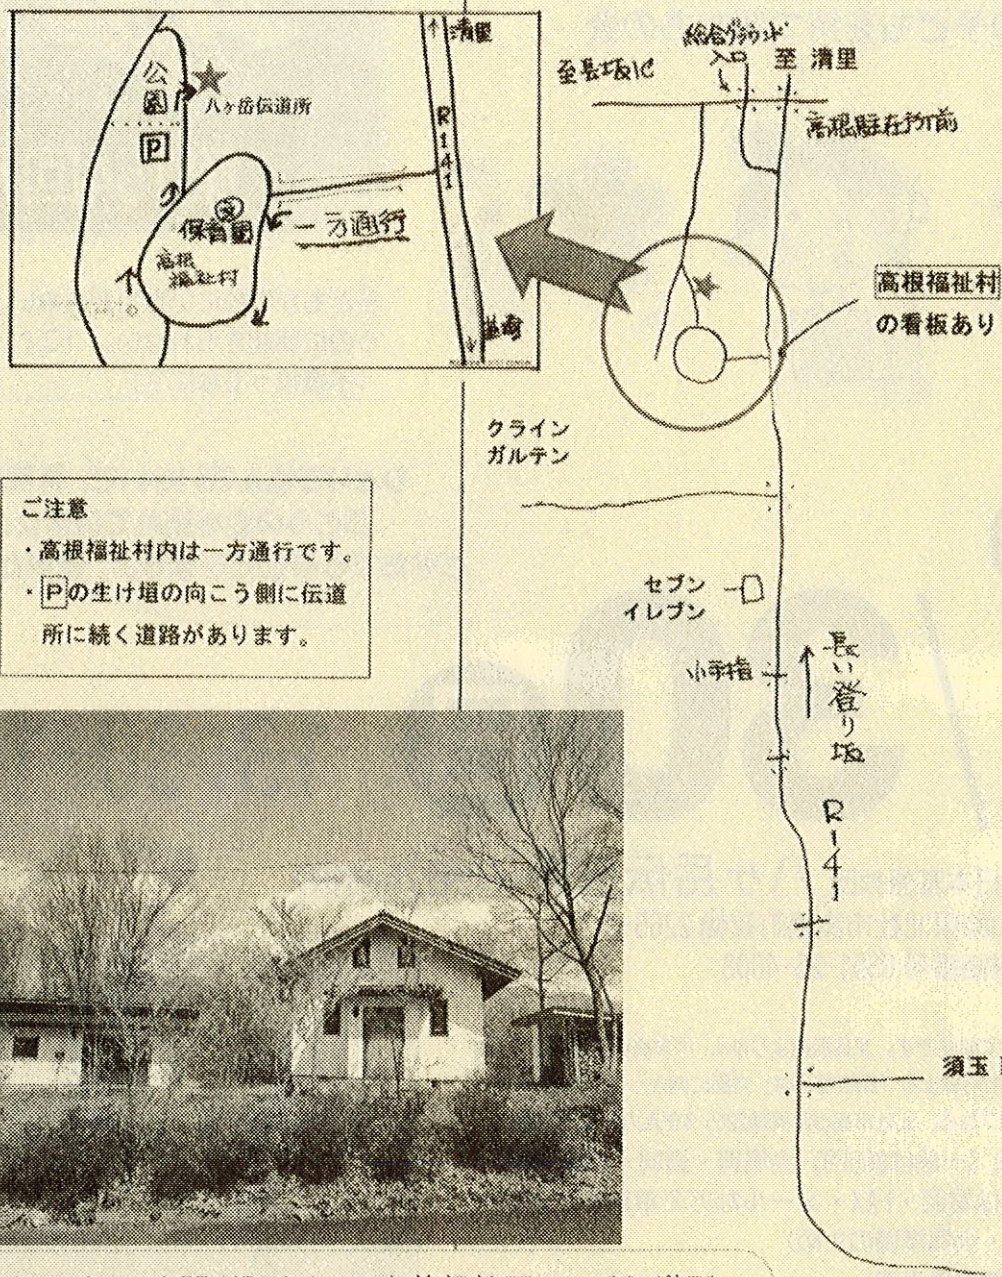 清里
公
園
八ヶ岳伝道所
P
R141
保育園
一方通行
高根
福祉村
韮崎
総合グラウンド
入口
至 清里
至長坂IC
高根駐在所前
高根福祉村
の看板あり
クライン
ガルテン
ご注意
・高根福祉村内は一方通行です。
・Pの生け垣の向こう側に伝道
所に続く道路があります。
セブン
イレブン
小手指
長い登り坂
R141
須玉